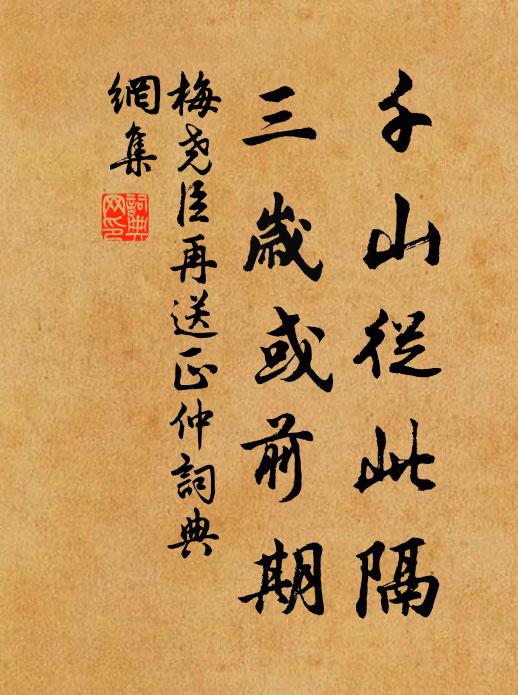 千山從此隔
三歲或前期
梅堯臣再送正仲詞典
網集
詞典
网印